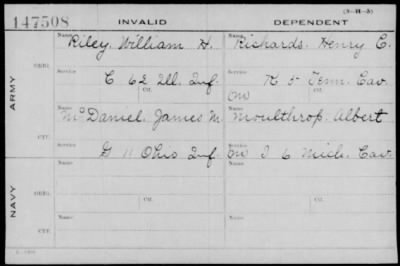 (3-H-3)
147508 INVALID DEPENDENT
Name Riley, William H. Name Richards, Henry C.
ORIG.
Service C 62 Ill. Inf. Service K 5 Tenn. Cav.
Ctf. (M) Ctf.
ARMY
Name McDaniel, James M Name Moulthrop, Albert
CTF.
Service G 11 Ohio Inf. Service (M) I 6 Mich. Cav.
Name Name
ORIG.
Service Ctf. Service Ctf.
NAVY
Name Name
CTF.
Service Service